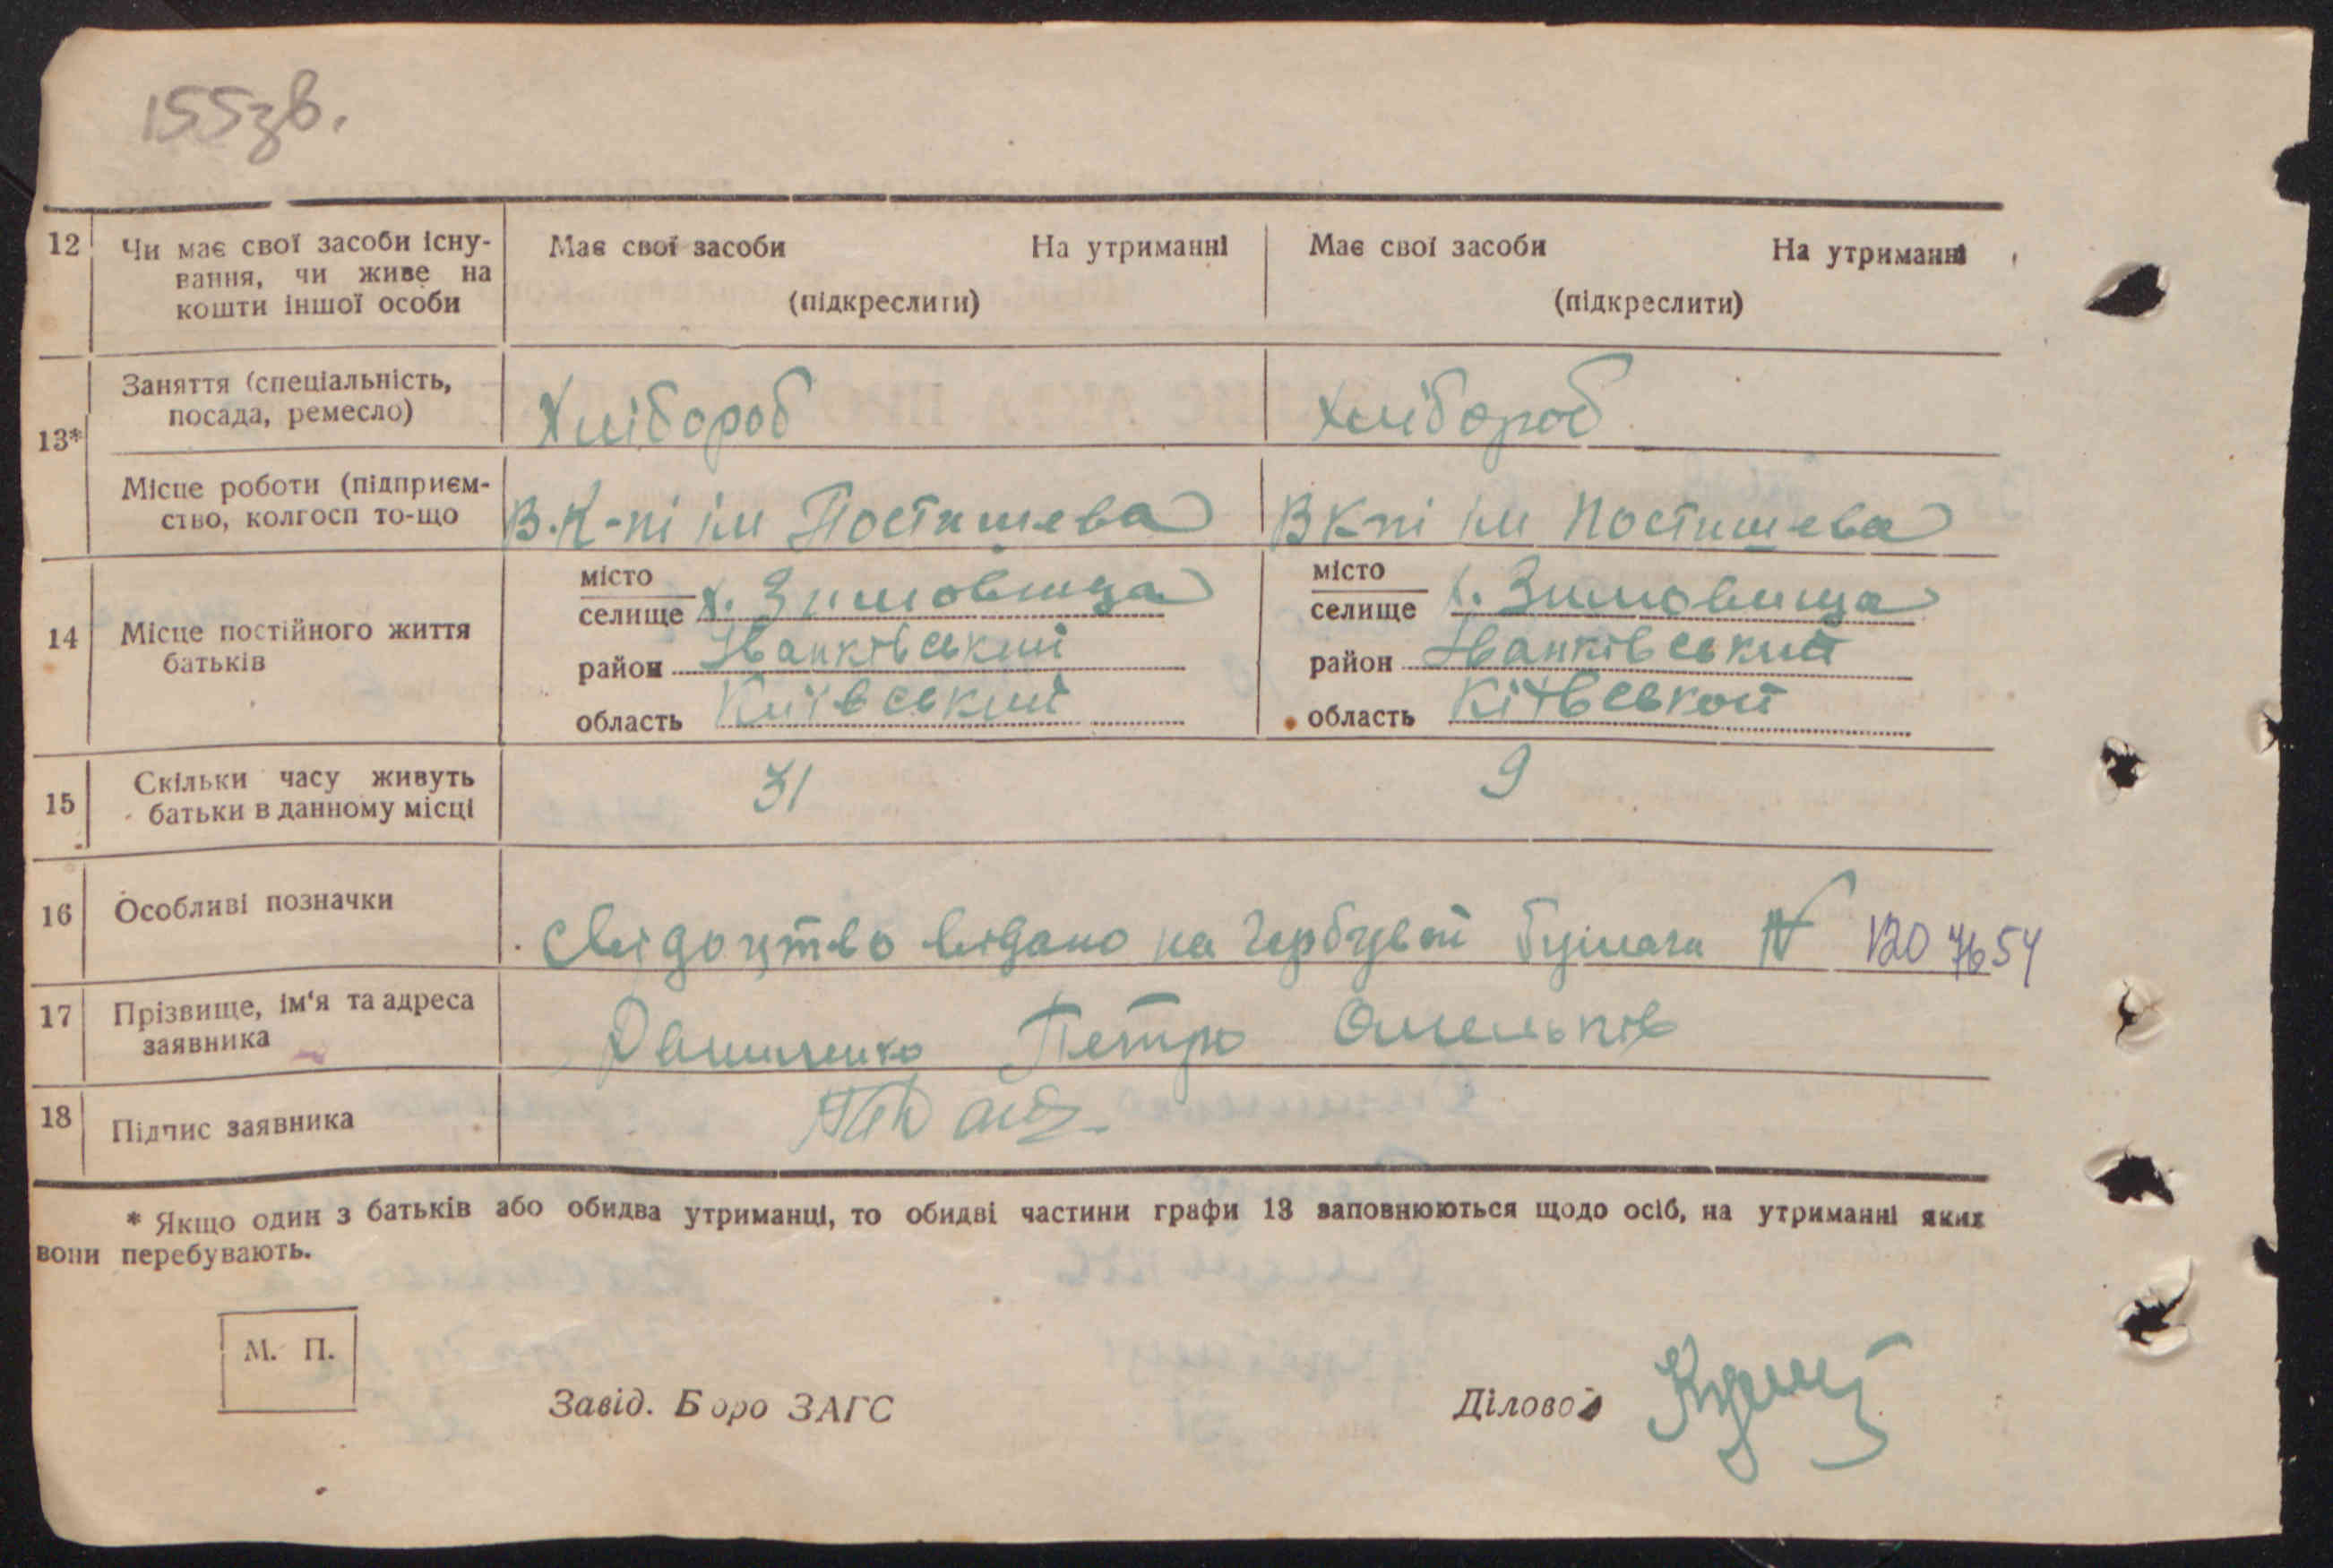 155зв.
12 Чи має свої засоби існу-
вання, чи живе на
кошти іншої особи
Має свої засоби На утриманні
(підкреслити)
Має свої засоби На утриманні
(підкреслити)
13* Заняття (спеціальність,
посада, ремесло)
Хлібороб
Хлібороб
Місце роботи (підприєм-
ство, колгосп то-що
В.К-пі ім Постишева
В К-пі ім Постишева
14 Місце постійного життя
батьків
місто
селище х. Зимовища
район Іванківський
область Київський
місто
селище х. Зимовища
район Іванківський
область Кіївської
15 Скільки часу живуть
батьки в данному місці
31
9
16 Особливі позначки
Свідоцтво видано на гербувой бумаги № 1207654
17 Прізвище, ім'я та адреса
заявника
Даниченко Петро Омельків
18 Підпис заявника
* Якщо один з батьків або обидва утриманці, то обидві частини графи 13 заповнюються щодо осіб, на утриманні яких
вони перебувають.
М. П.
Завід. Бюро ЗАГС
Діловод